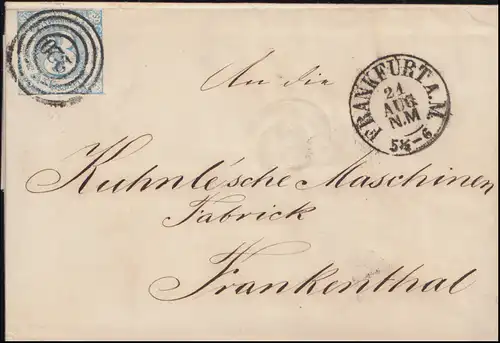 An die
FRANKFURT A. M.
21
AUG
N.M
5½-6
Kuhnle'sche Maschinen
Fabrick
Frankenthal